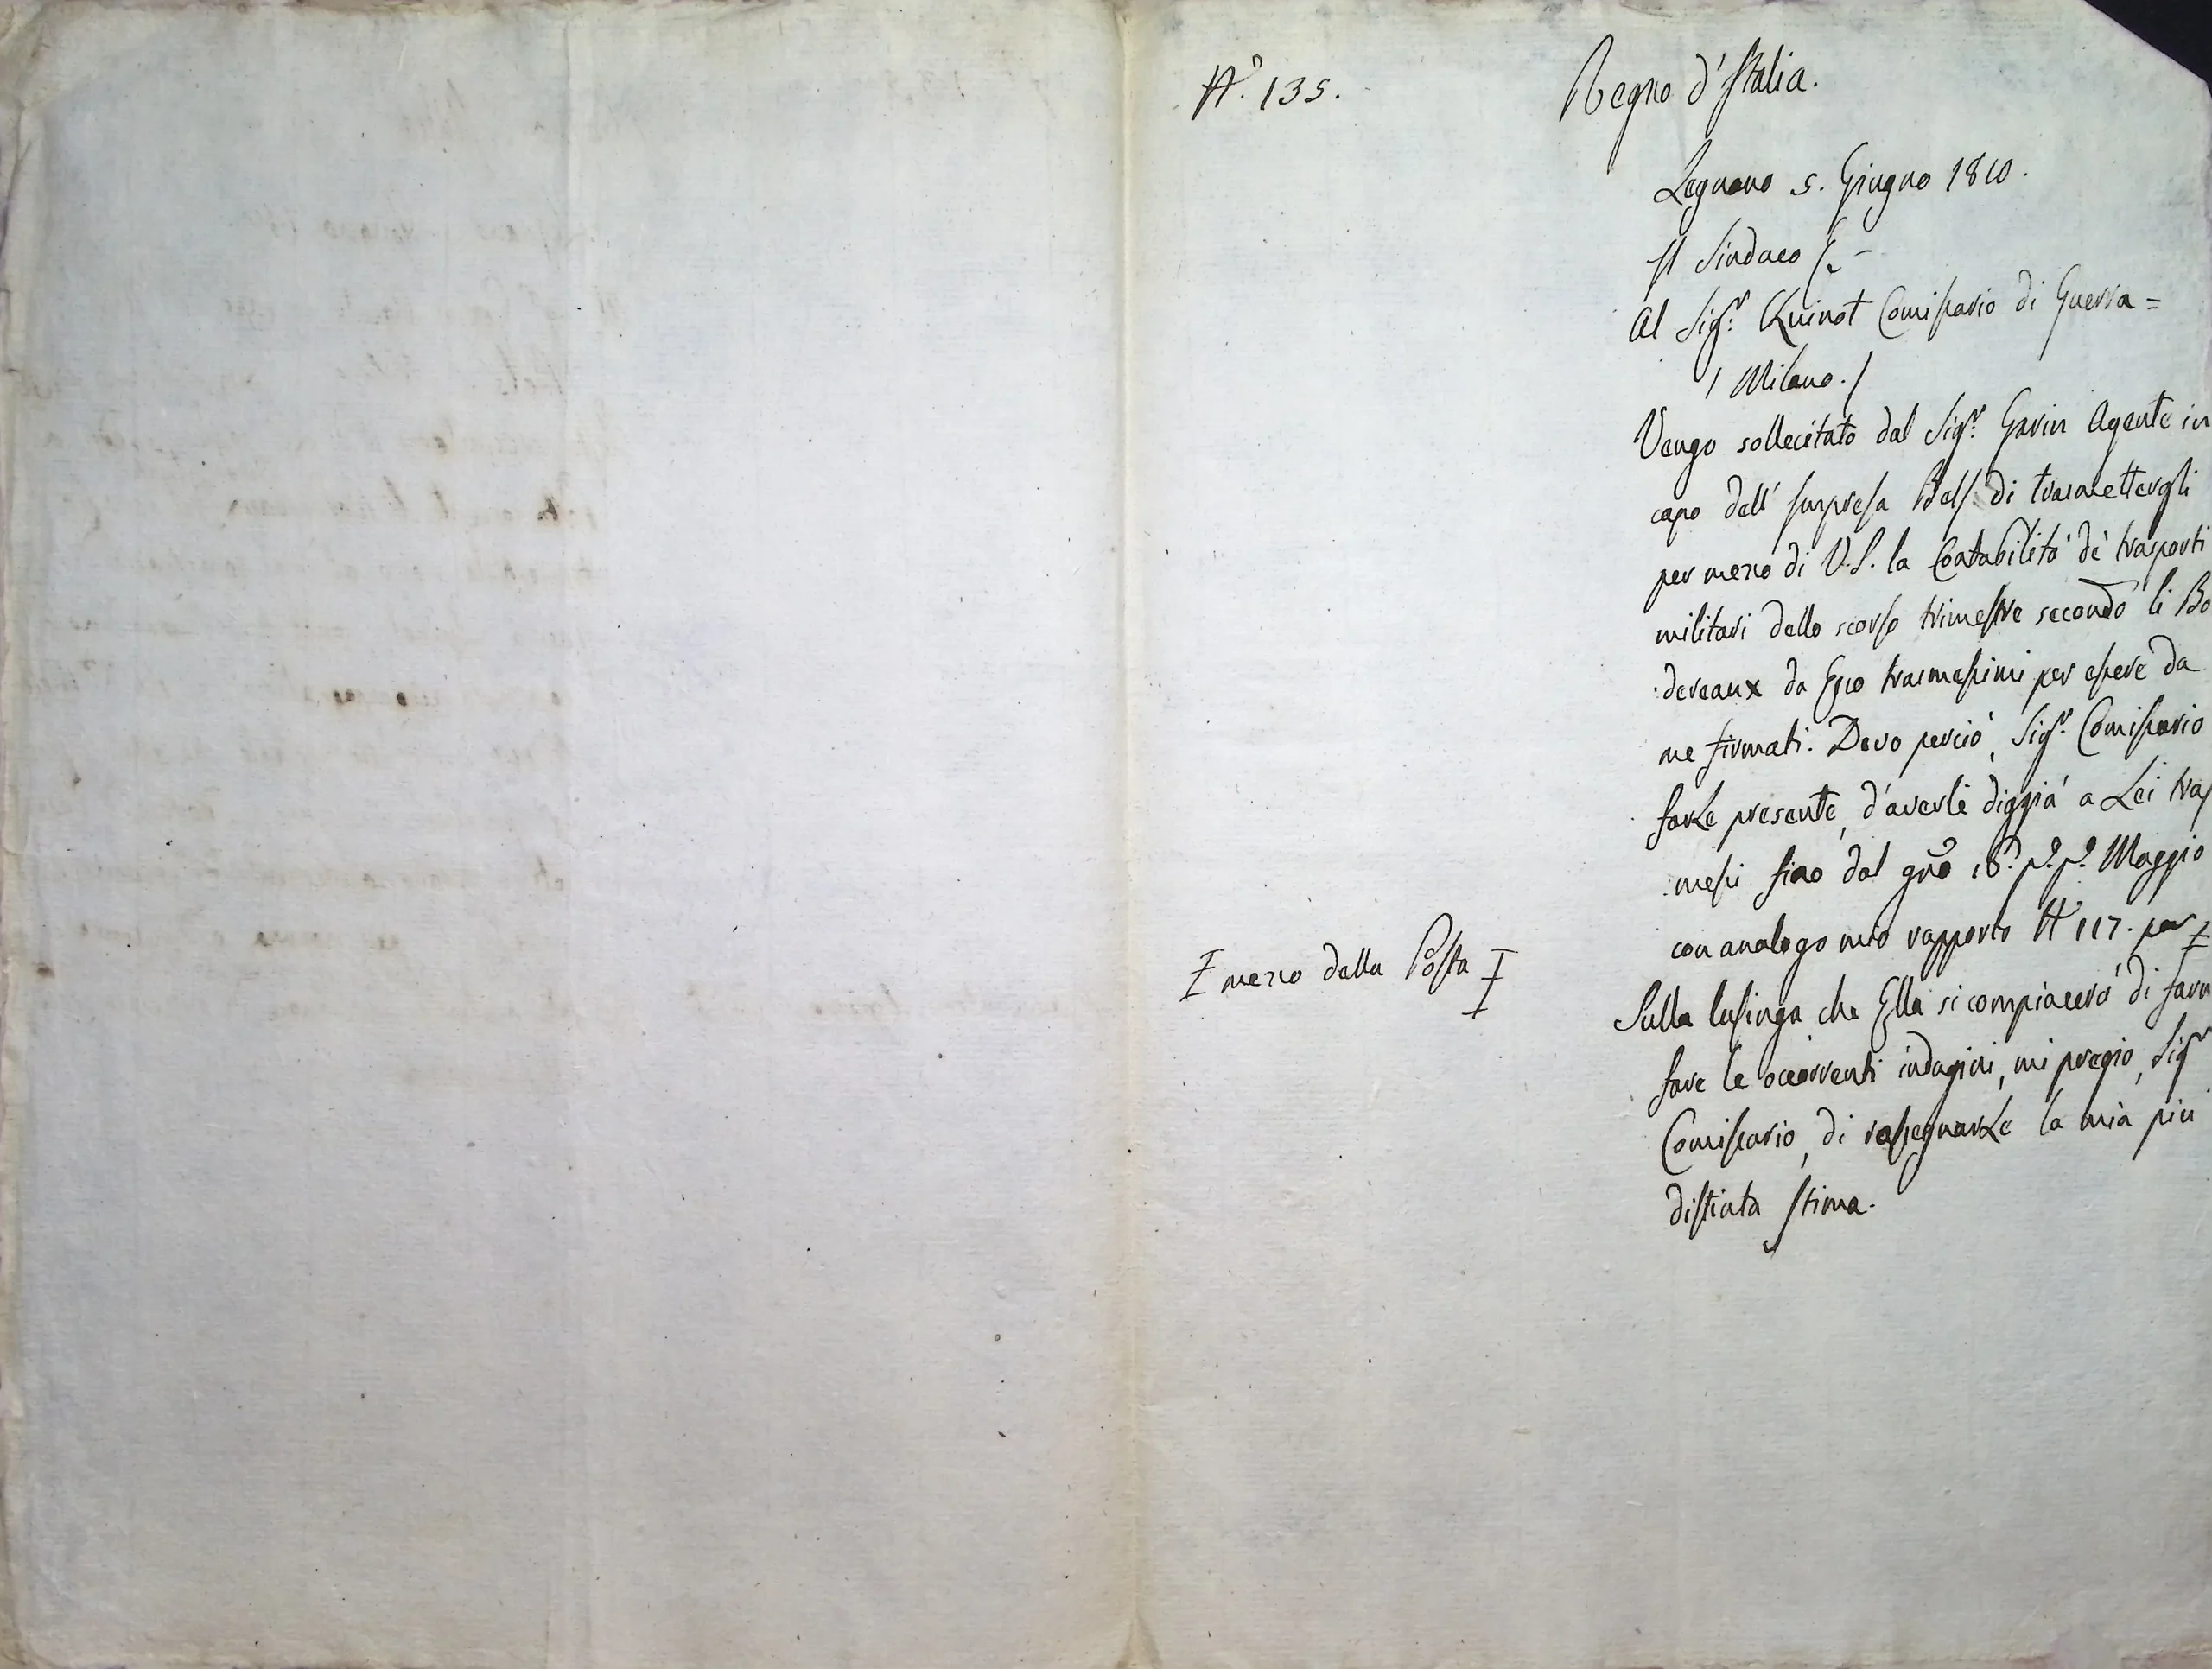 N.° 135.
Regno d'Italia.
Legnano 5. Giugno 1810.
Il Sindaco
Al Sig.r Quinot Comissario di Guerra =
/ Milano. /
Vengo sollecitato dal Sig.r Gavin Agente in
capo dell' Impresa Bell di trasmettergli
per mezzo di V.S. la Contabilità de' trasporti
militari dello scorso trimestre secondo li Bo
dereaux da Esso trasmessimi per essere da
me firmati. Devo perciò, Sig.r Comissario
farLe presente, d'averli diggià a Lei tras
messi fino dal gno 18. p.° p.° Maggio
con analogo mio rapporto N 117. per
mezzo della Posta
Sulla lusinga che Ella si compiacerà di farn
fare le occorrenti indagini, mi pregio, Sigr
Comissario, di rassegnarLe la mia più
distinta stima.